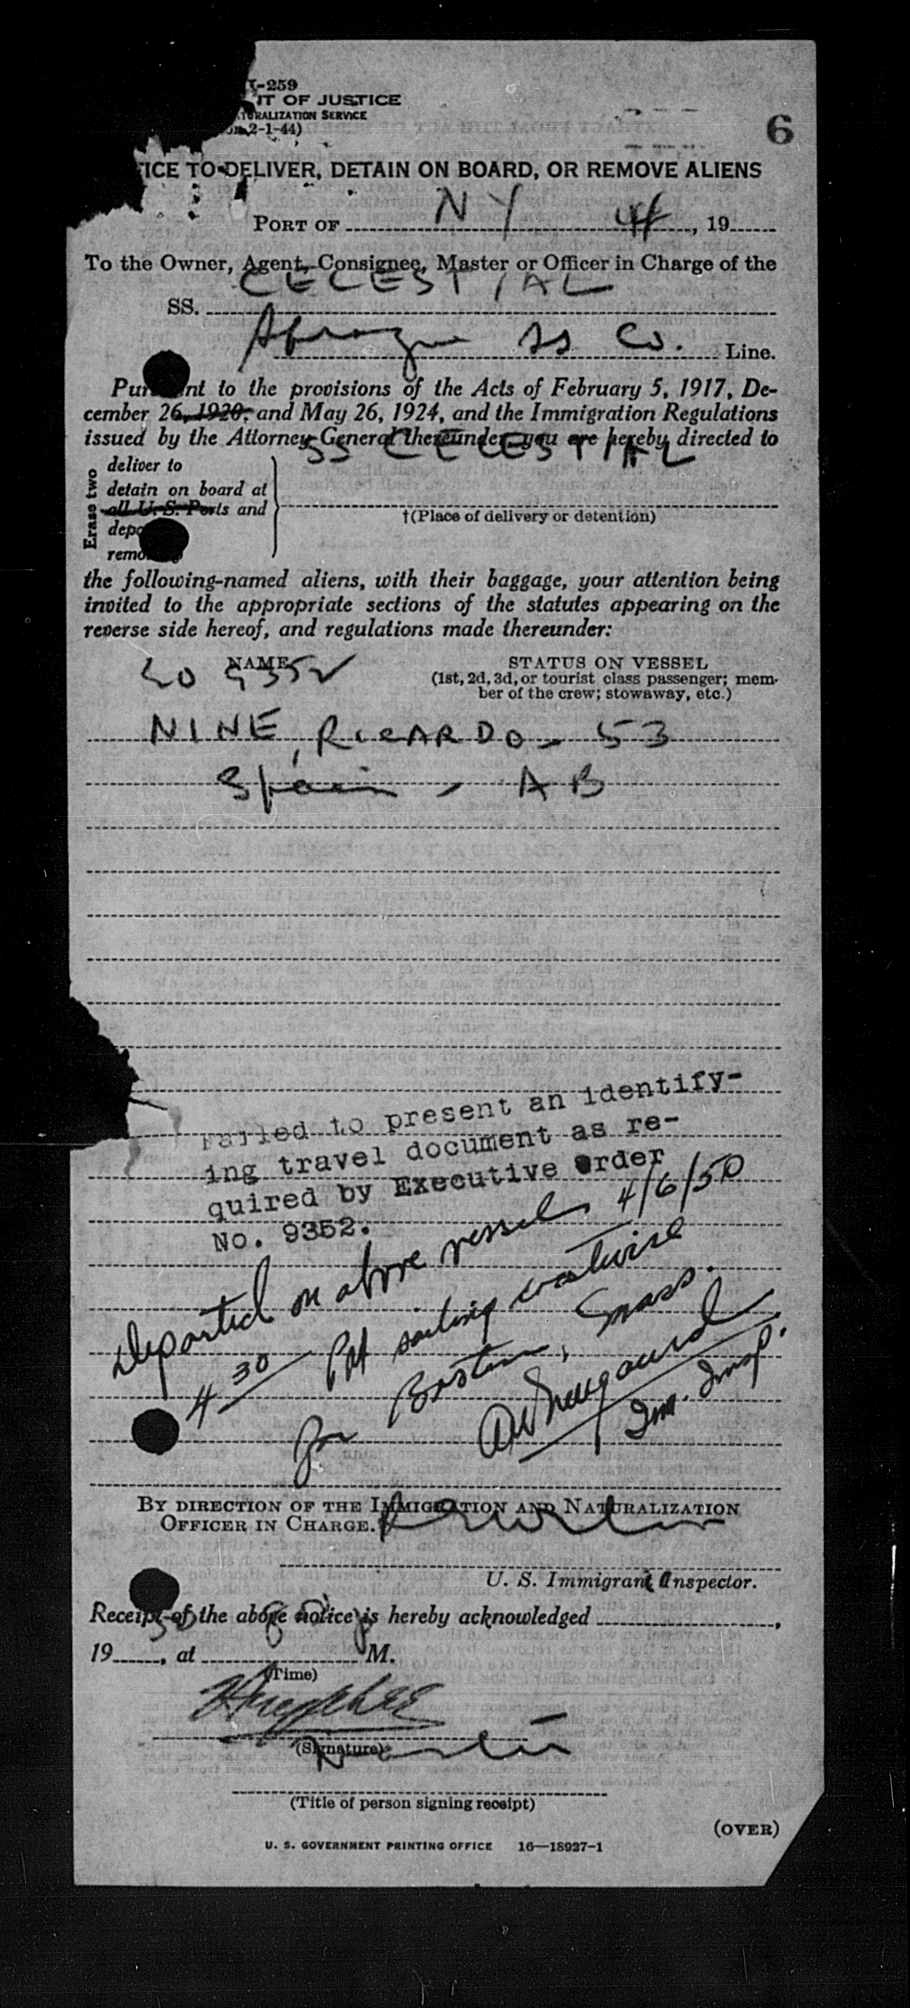 I-259
T OF JUSTICE
NATURALIZATION SERVICE
2-1-44)
6
ICE TO DELIVER, DETAIN ON BOARD, OR REMOVE ALIENS
PORT OF NY 4/, 19
To the Owner, Agent, Consignee, Master or Officer in Charge of the
SS. CELESTIAL
SS Co. Line.
Pursuant to the provisions of the Acts of February 5, 1917, De-
cember 26, 1920, and May 26, 1924, and the Immigration Regulations
issued by the Attorney General thereunder, you are hereby directed to
SS CELESTIAL
Erase two
deliver to
detain on board at
all U. S. Ports and
depo
remo
†(Place of delivery or detention)
the following-named aliens, with their baggage, your attention being
invited to the appropriate sections of the statutes appearing on the
reverse side hereof, and regulations made thereunder:
NAME
STATUS ON VESSEL
(1st, 2d, 3d, or tourist class passenger; mem-
ber of the crew; stowaway, etc.)
EO 9352
NINE, RICARDO - 53
Spain - AB
Failed to present an identify-
ing travel document as re-
quired by Executive Order
No. 9352.
Departed on above vessel 4/6/50
4 30 PM sailing coastwise
for Boston, Mass.
Im. Insp.
BY DIRECTION OF THE IMMIGRATION AND NATURALIZATION
OFFICER IN CHARGE.
U. S. Immigrant Inspector.
Receipt of the above notice is hereby acknowledged ,
19 , at M.
(Time)
(Signature)
Master
(Title of person signing receipt)
(OVER)
U. S. GOVERNMENT PRINTING OFFICE 16—18927-1